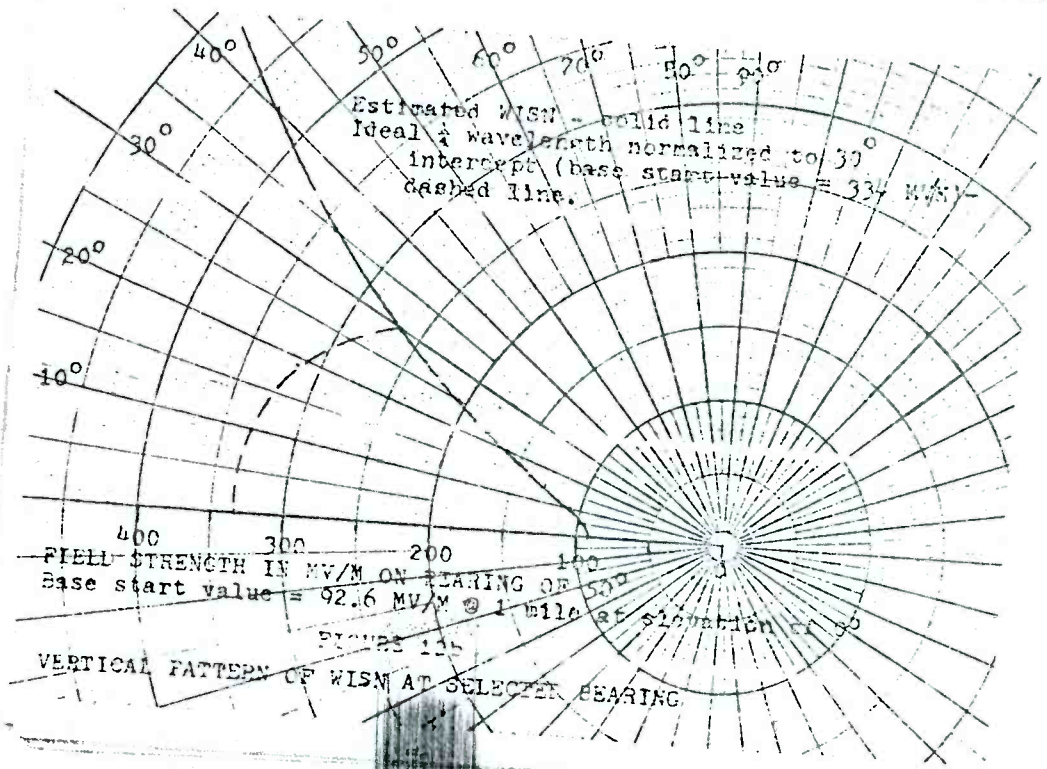 40° 50° 60° 70° 80° 90°
Estimated WISN - solid line
Ideal ¼ wavelength normalized to 30°
intercept (base start value = 334 MV/M)-
dashed line.
30°
20°
10°
400 300 200 100
FIELD STRENGTH IN MV/M ON BEARING OF 50°
Base start value = 92.6 MV/M @ 1 mile at elevation of 0°
FIGURE
VERTICAL PATTERN OF WISN AT SELECTED BEARING